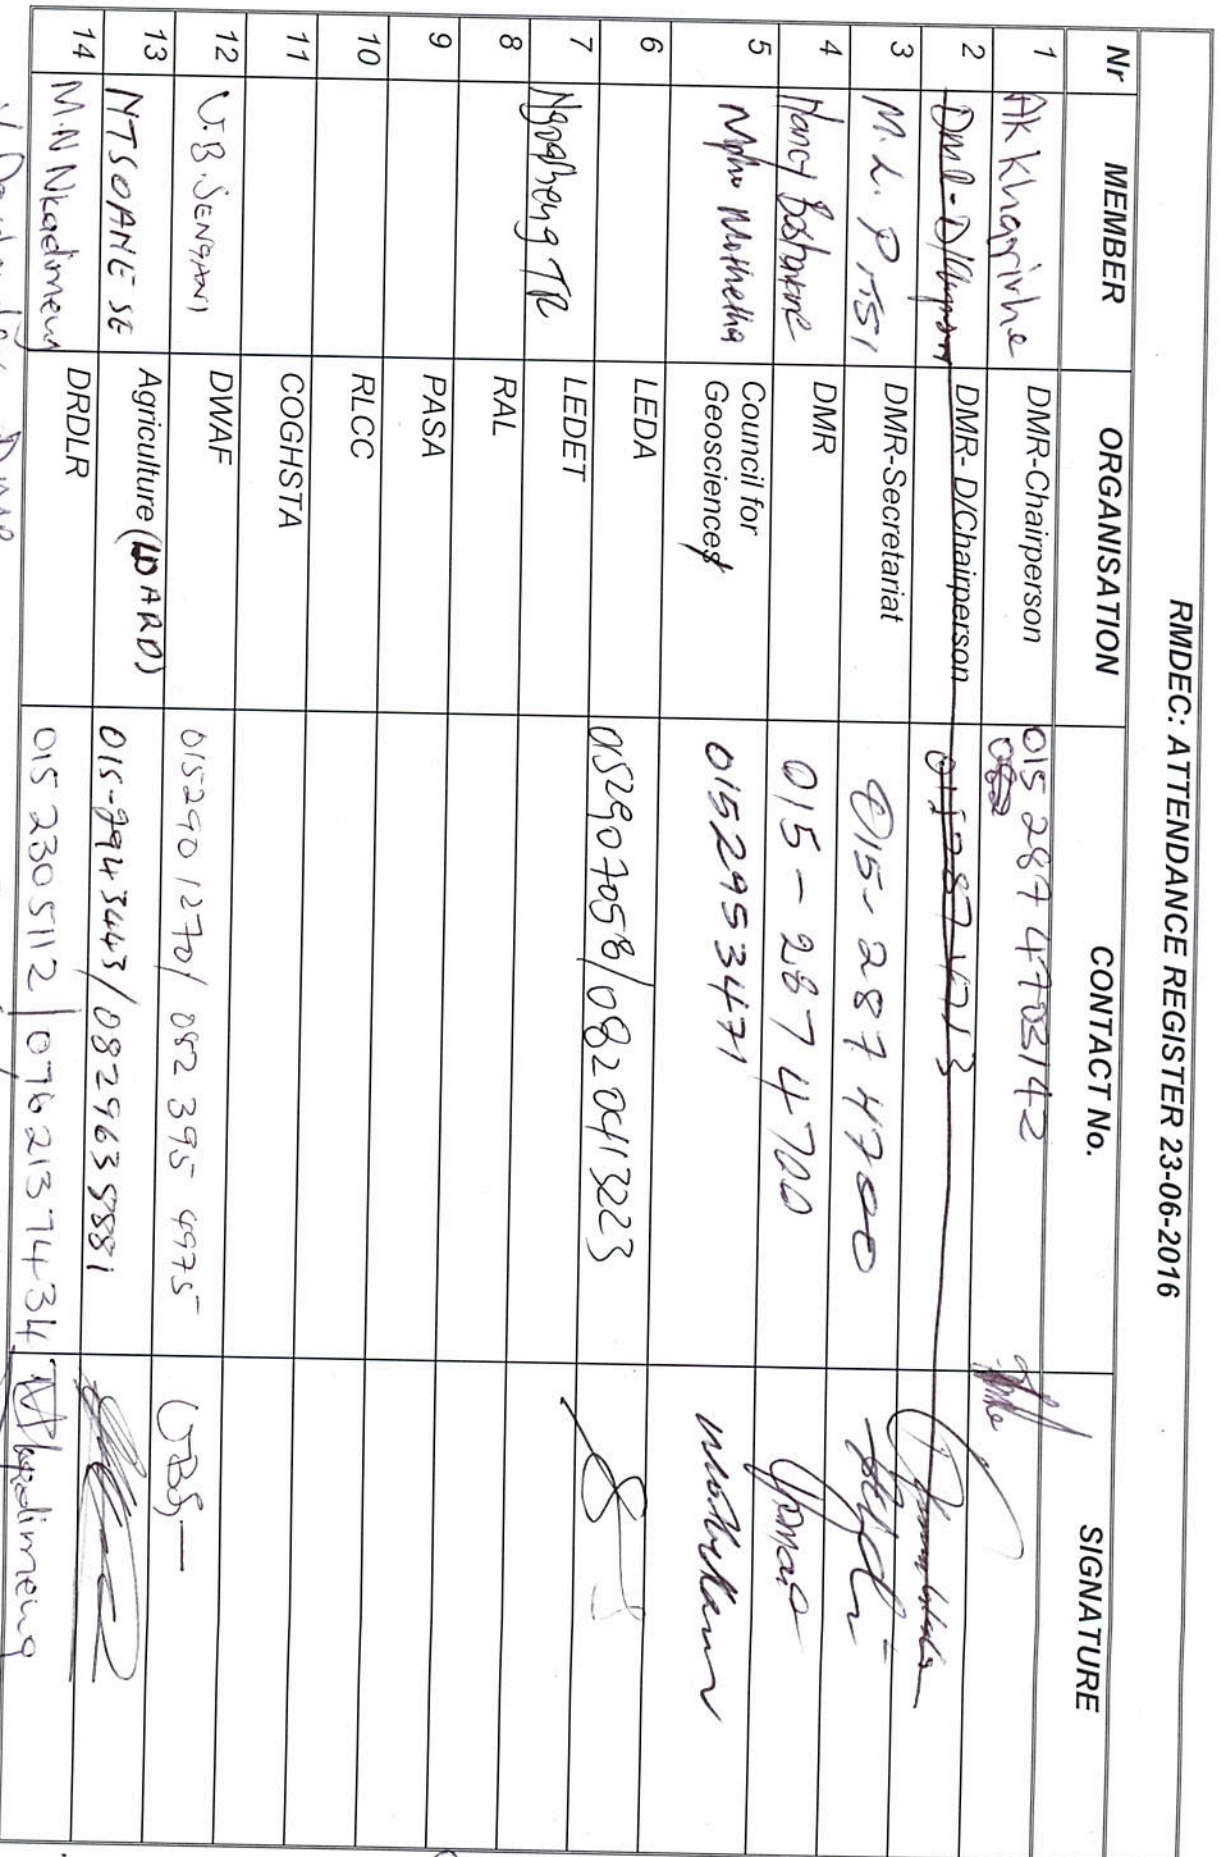 RMDEC: ATTENDANCE REGISTER 23-06-2016
Nr MEMBER ORGANISATION CONTACT No. SIGNATURE
1 AK Kharivhe DMR-Chairperson 015 287 4703/42
2 DMR- D/Chairperson
3 M.L. DMR-Secretariat 015-287 4700
4 Nancy DMR 015-287 4700
5 Mpho Mothetha Council for 0152953471
Geosciences
6 LEDA
7 Ngoasheng TR LEDET 0152907058/
8 RAL
9 PASA
10 RLCC
11 COGHSTA
12 U.B. SENGANI DWAF 015290 1270/ 082 395 4975
13 NTSOANE SE Agriculture (LDARD) 015-2943443/0829635881
14 M.N Nkadimeng DRDLR 015 2305112 / 0762137434 Nkadimeng